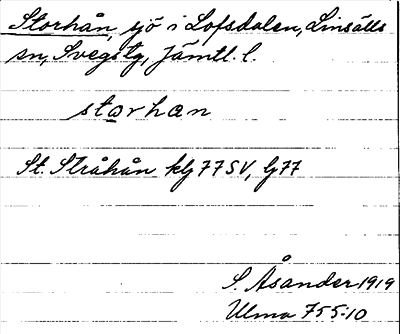 Storhån, sjö i Lofsdalen, Linsälls
sn, Svegstg, Jämtl. l.
storhan
St. Stråhån kbl 77 SV, G77
S. Åsander 1919
Ulma 755:10